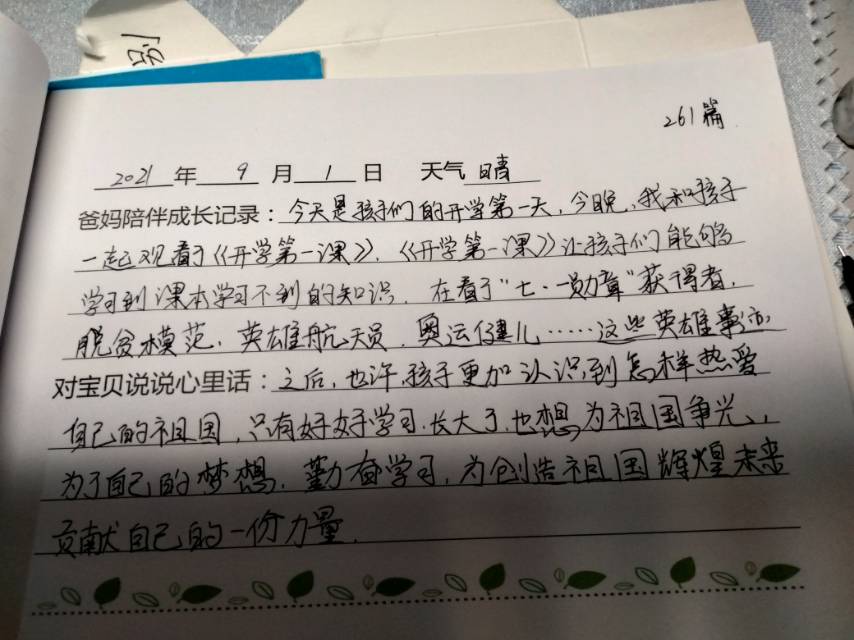 261篇
2021年9月1日 天气晴
爸妈陪伴成长记录：今天是孩子们的开学第一天，今晚，我和孩子
一起观看了《开学第一课》.《开学第一课》让孩子们能够
学习到课本学习不到的知识．在看了"七·一勋章"获得者，
脱贫模范，英雄航天员，奥运健儿……这些英雄事迹
对宝贝说说心里话：之后，也许，孩子更加认识到怎样热爱
自己的祖国，只有好好学习.长大了，也想为祖国争光，
为了自己的梦想．勤奋学习，为创造祖国辉煌未来
贡献自己的一份力量．